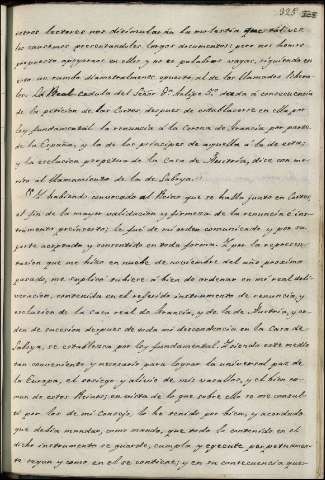 325
estros lectores nos disimularán la molestia que tal vez
les causemos presentandoles largos documentos; pero nos hemos
propuesto apoyarnos en ellos y no en palabras vagas, siguiendo en
esto un rumbo diametralmente opuesto al de los llamados libera-
les. La Real cedula del Señor Dn. Felipe 5º. dada á consecuencia
de la peticion de las Cortes, despues de establecerse en ella por
ley fundamental la renuncia á la Corona de Francia por parte
de la España, y la de los principes de aquella á la de esta;
y la esclusion perpetua de la Casa de Austria, dice con res-
to al llamamiento de la de Saboya.
Y habiendo convocado al Reino que se halla junto en Cortes,
al fin de la mayor validacion y firmeza de la renuncia é ins-
trumento preinserto; le fué de mi orden comunicado, y por su
parte aceptado y consentido en toda forma. Y por la represen-
tacion que me hizo en nueve de noviembre del año proximo
pasado, me suplicó tubiese á bien de ordenar en mi real deli-
veracion, contenida en el referido instrumento de renuncia, y
esclusion de la casa real de Francia, y de la de Austria, y or-
den de sucesion despues de toda mi descendencia en la Casa de
Saboya, se estableciese por ley fundamental. Y siendo este medio
tan conveniente y necesario para lograr la universal paz de
la Europa, el sosiego y alivio de mis vasallos, y el bien co-
mun de estos Reinos; en vista de lo que sobre ello se me consul-
tó por los de mi Consejo, lo he tenido por bien, y acordado
que debia mandar, como mando, que todo lo contenido en el
dicho instrumento se guarde, cumpla y egecute perpetuamente
segun y como en el se contiene; y en su consecuencia que-